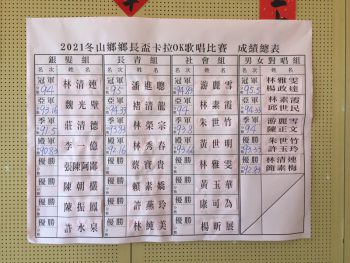 2021冬山鄉鄉長盃卡拉OK歌唱比賽 成績總表
銀髮組 長青組 社會組 男女對唱組
名次 姓名 名次 姓名 名次 姓名 名次 姓名
冠軍 94 林清連 冠軍 95 潘進聰 冠軍 94.83 游麗雪 冠軍 94 林雅雯 楊政達
亞軍 魏光壁 亞軍 94 褚清龍 亞軍 94 林素霞 亞軍 林素霞 邱世民
季軍 91.5 莊清德 季軍 林榮宗 季軍 朱世竹 季軍 游麗雪 陳正文
殿軍 李一億 殿軍 林秀春 殿軍 黃世明 優勝 朱世竹 許玉玲
優勝 張陳阿鄰 優勝 蔡寶貴 優勝 林雅雯 優勝 林清連
優勝 陳朝 優勝 賴素嬌 優勝 黃玉華
優勝 陳振鳳 優勝 許燕玲 優勝 康可為
優勝 許水泉 優勝 林純美 優勝 楊昕展